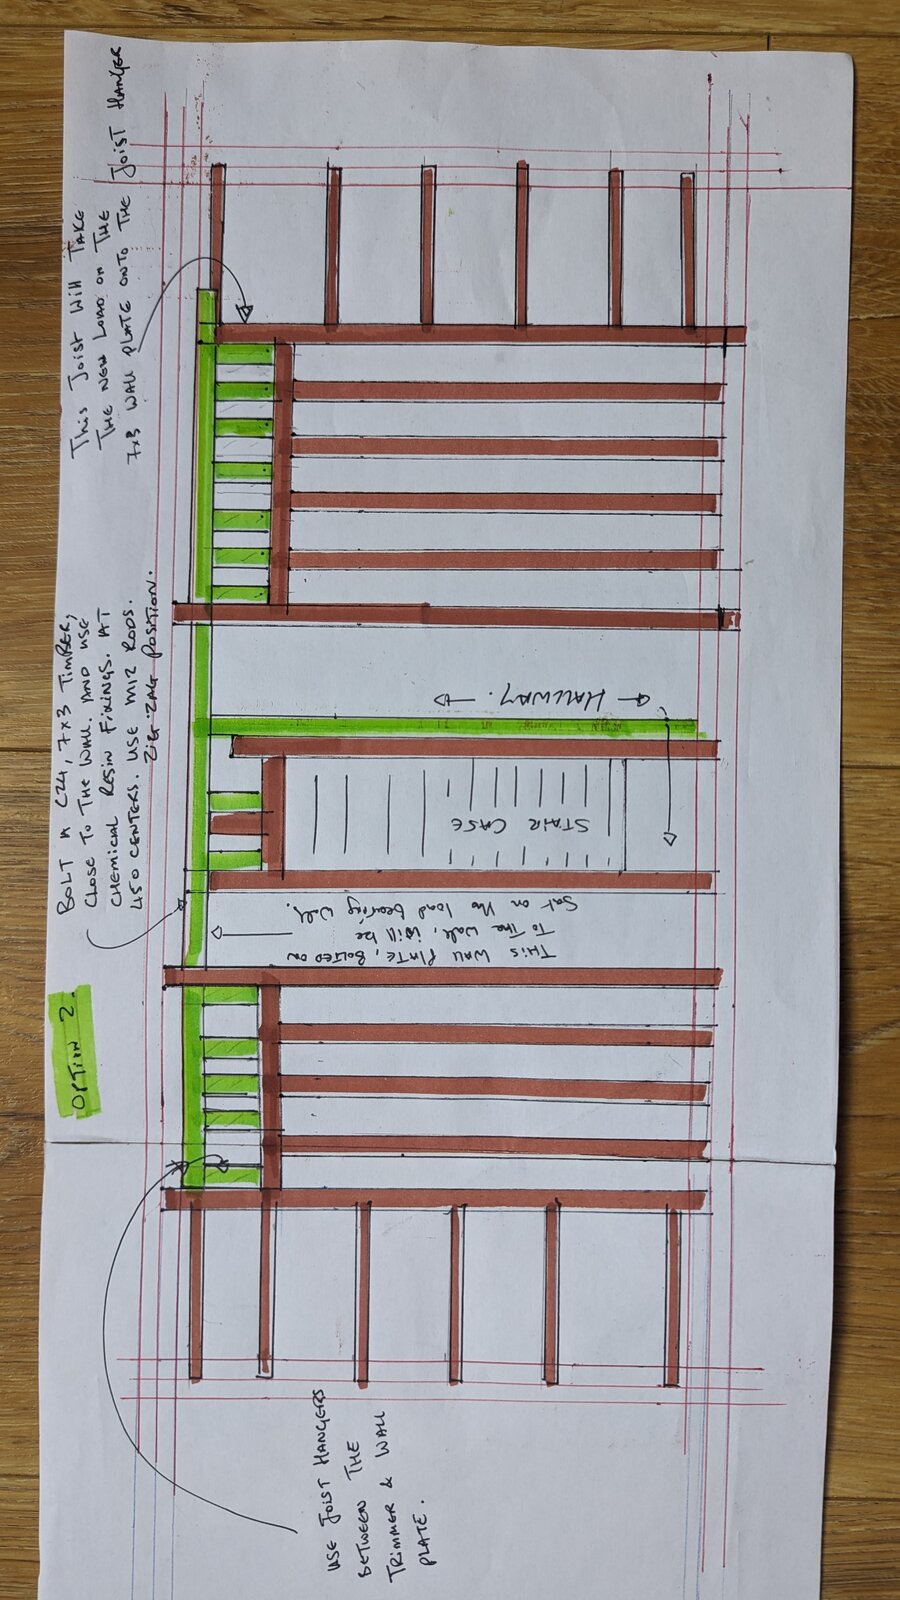 OPTION 2.
BOLT A C24, 7x3 TIMBER,
CLOSE TO THE WALL. AND USE
CHEMICAL RESIN FIXINGS. AT
450 CENTERS. USE M12 RODS.
ZIG-ZAG POSITION.
THIS JOIST WILL TAKE
THE NEW LOAD ON THE
7x3 WALL PLATE ONTO THE JOIST HANGER
← HALLWAY. →
STAIR CASE
THIS WALL PLATE, BOLTED ON
TO THE WALL, WILL BE
SAT ON THE load bearing WALL.
USE JOIST HANGERS
BETWEEN THE
TRIMMER & WALL
PLATE.